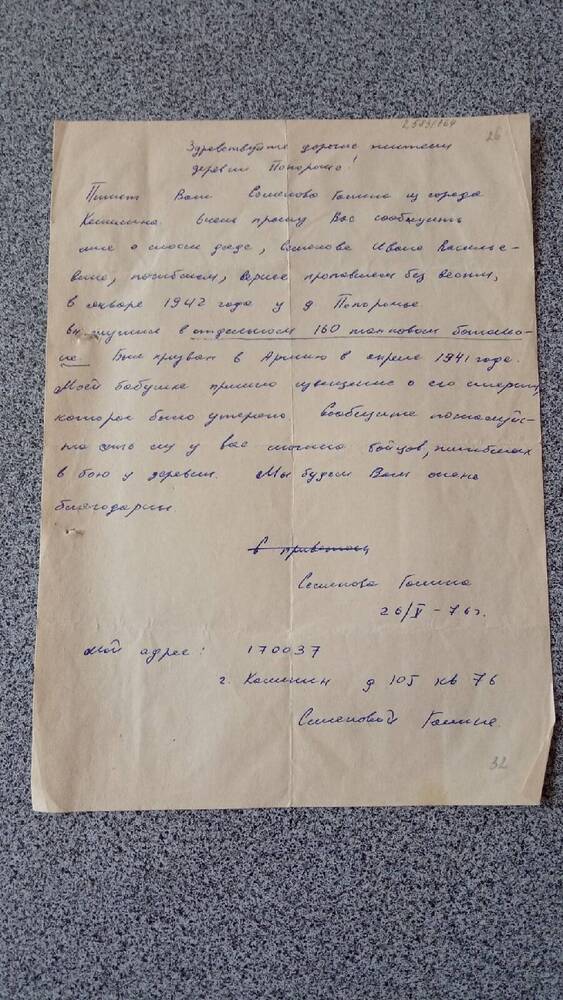 26
Здравствуйте дорогие жители
деревни Попорожье!
Пишет Вам Семенова Галина из города
Калинина. Очень прошу Вас сообщить
мне о моем дяде, Семенове Иване Василье-
виче, погибшем, вернее пропавшем без вести,
в январе 1942 года у д Попорожье.
Он служил в отдельном 160 танковом батальо-
не. Был призван в Армию в апреле 1941 года.
Моей бабушке пришло извещение о его смерти,
которое было утеряно. Сообщите пожалуйс-
та есть ли у вас могила бойцов, погибших
в бою у деревни. Мы будем Вам очень
благодарны.
Семенова Галина
26/V - 76 г.
Мой адрес: 170037
г. Калинин д 105 кв 76
Семеновой Галине.
32